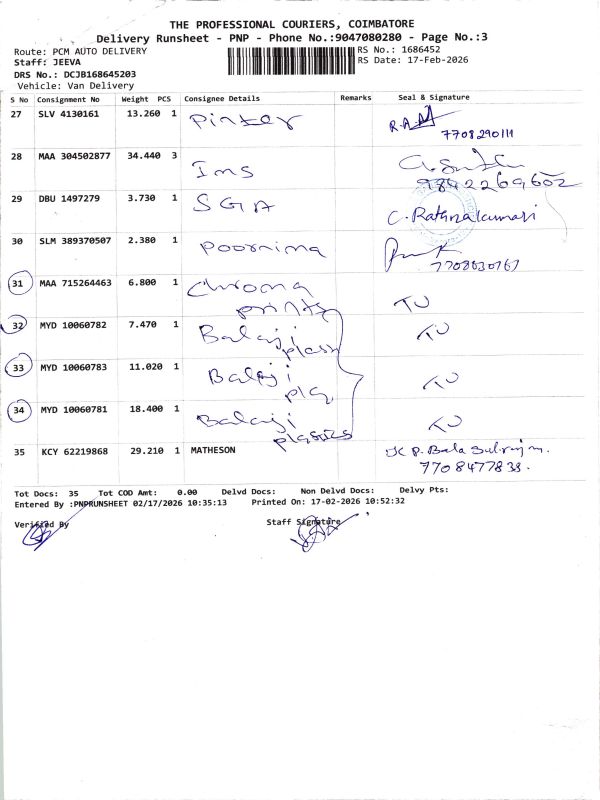 THE PROFESSIONAL COURIERS, COIMBATORE
Delivery Runsheet - PNP - Phone No.:9047080280 - Page No.:3
Route: PCM AUTO DELIVERY
Staff: JEEVA
DRS No.: DCJB168645203
Vehicle: Van Delivery
RS No.: 1686452
RS Date: 17-Feb-2026
S No Consignment No Weight PCS Consignee Details Remarks Seal & Signature
27 SLV 4130161 13.260 1 7708290111
28 MAA 304502877 34.440 3 Ims 9842269602
29 DBU 1497279 3.730 1 SGA C. Rathnakumari
30 SLM 389370507 2.380 1 Poornima
31 MAA 715264463 6.800 1 Chroma prints TU
32 MYD 10060782 7.470 1 Balaji TU
33 MYD 10060783 11.020 1 Balaji pla TU
34 MYD 10060781 18.400 1 Balaji plastics TU
35 KCY 62219868 29.210 1 MATHESON
Tot Docs: 35 Tot COD Amt: 0.00 Delvd Docs: Non Delvd Docs: Delvy Pts:
Entered By :PNPRUNSHEET 02/17/2026 10:35:13 Printed On: 17-02-2026 10:52:32
Verified By Staff Signature